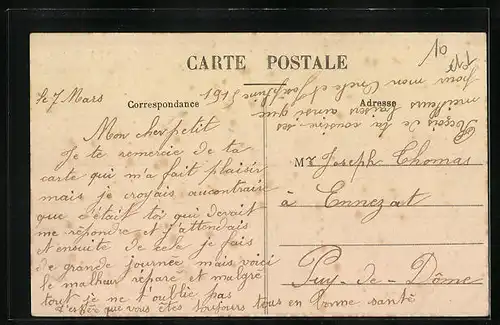 CARTE POSTALE
Correspondance
Adresse
le 7 Mars
Mon cher petit
Je te remercie de ta
carte qui m'a fait plaisir
mais je croyais aucontraire
que c'était toi qui devait
me répondre et j'attendais
et encuite de cela je fais
de grande journée mais voici
le malheur réparé et malgré
tout je ne t'oublie pas
J'espère que vous êtes toujours tous en bonne santé
Reçois de ta cousine ses
meilleurs baisers ainsi que
pour mon Oncle et Joséphine
Mr Joseph Thomas
à Ennezat
Puy-de-Dôme